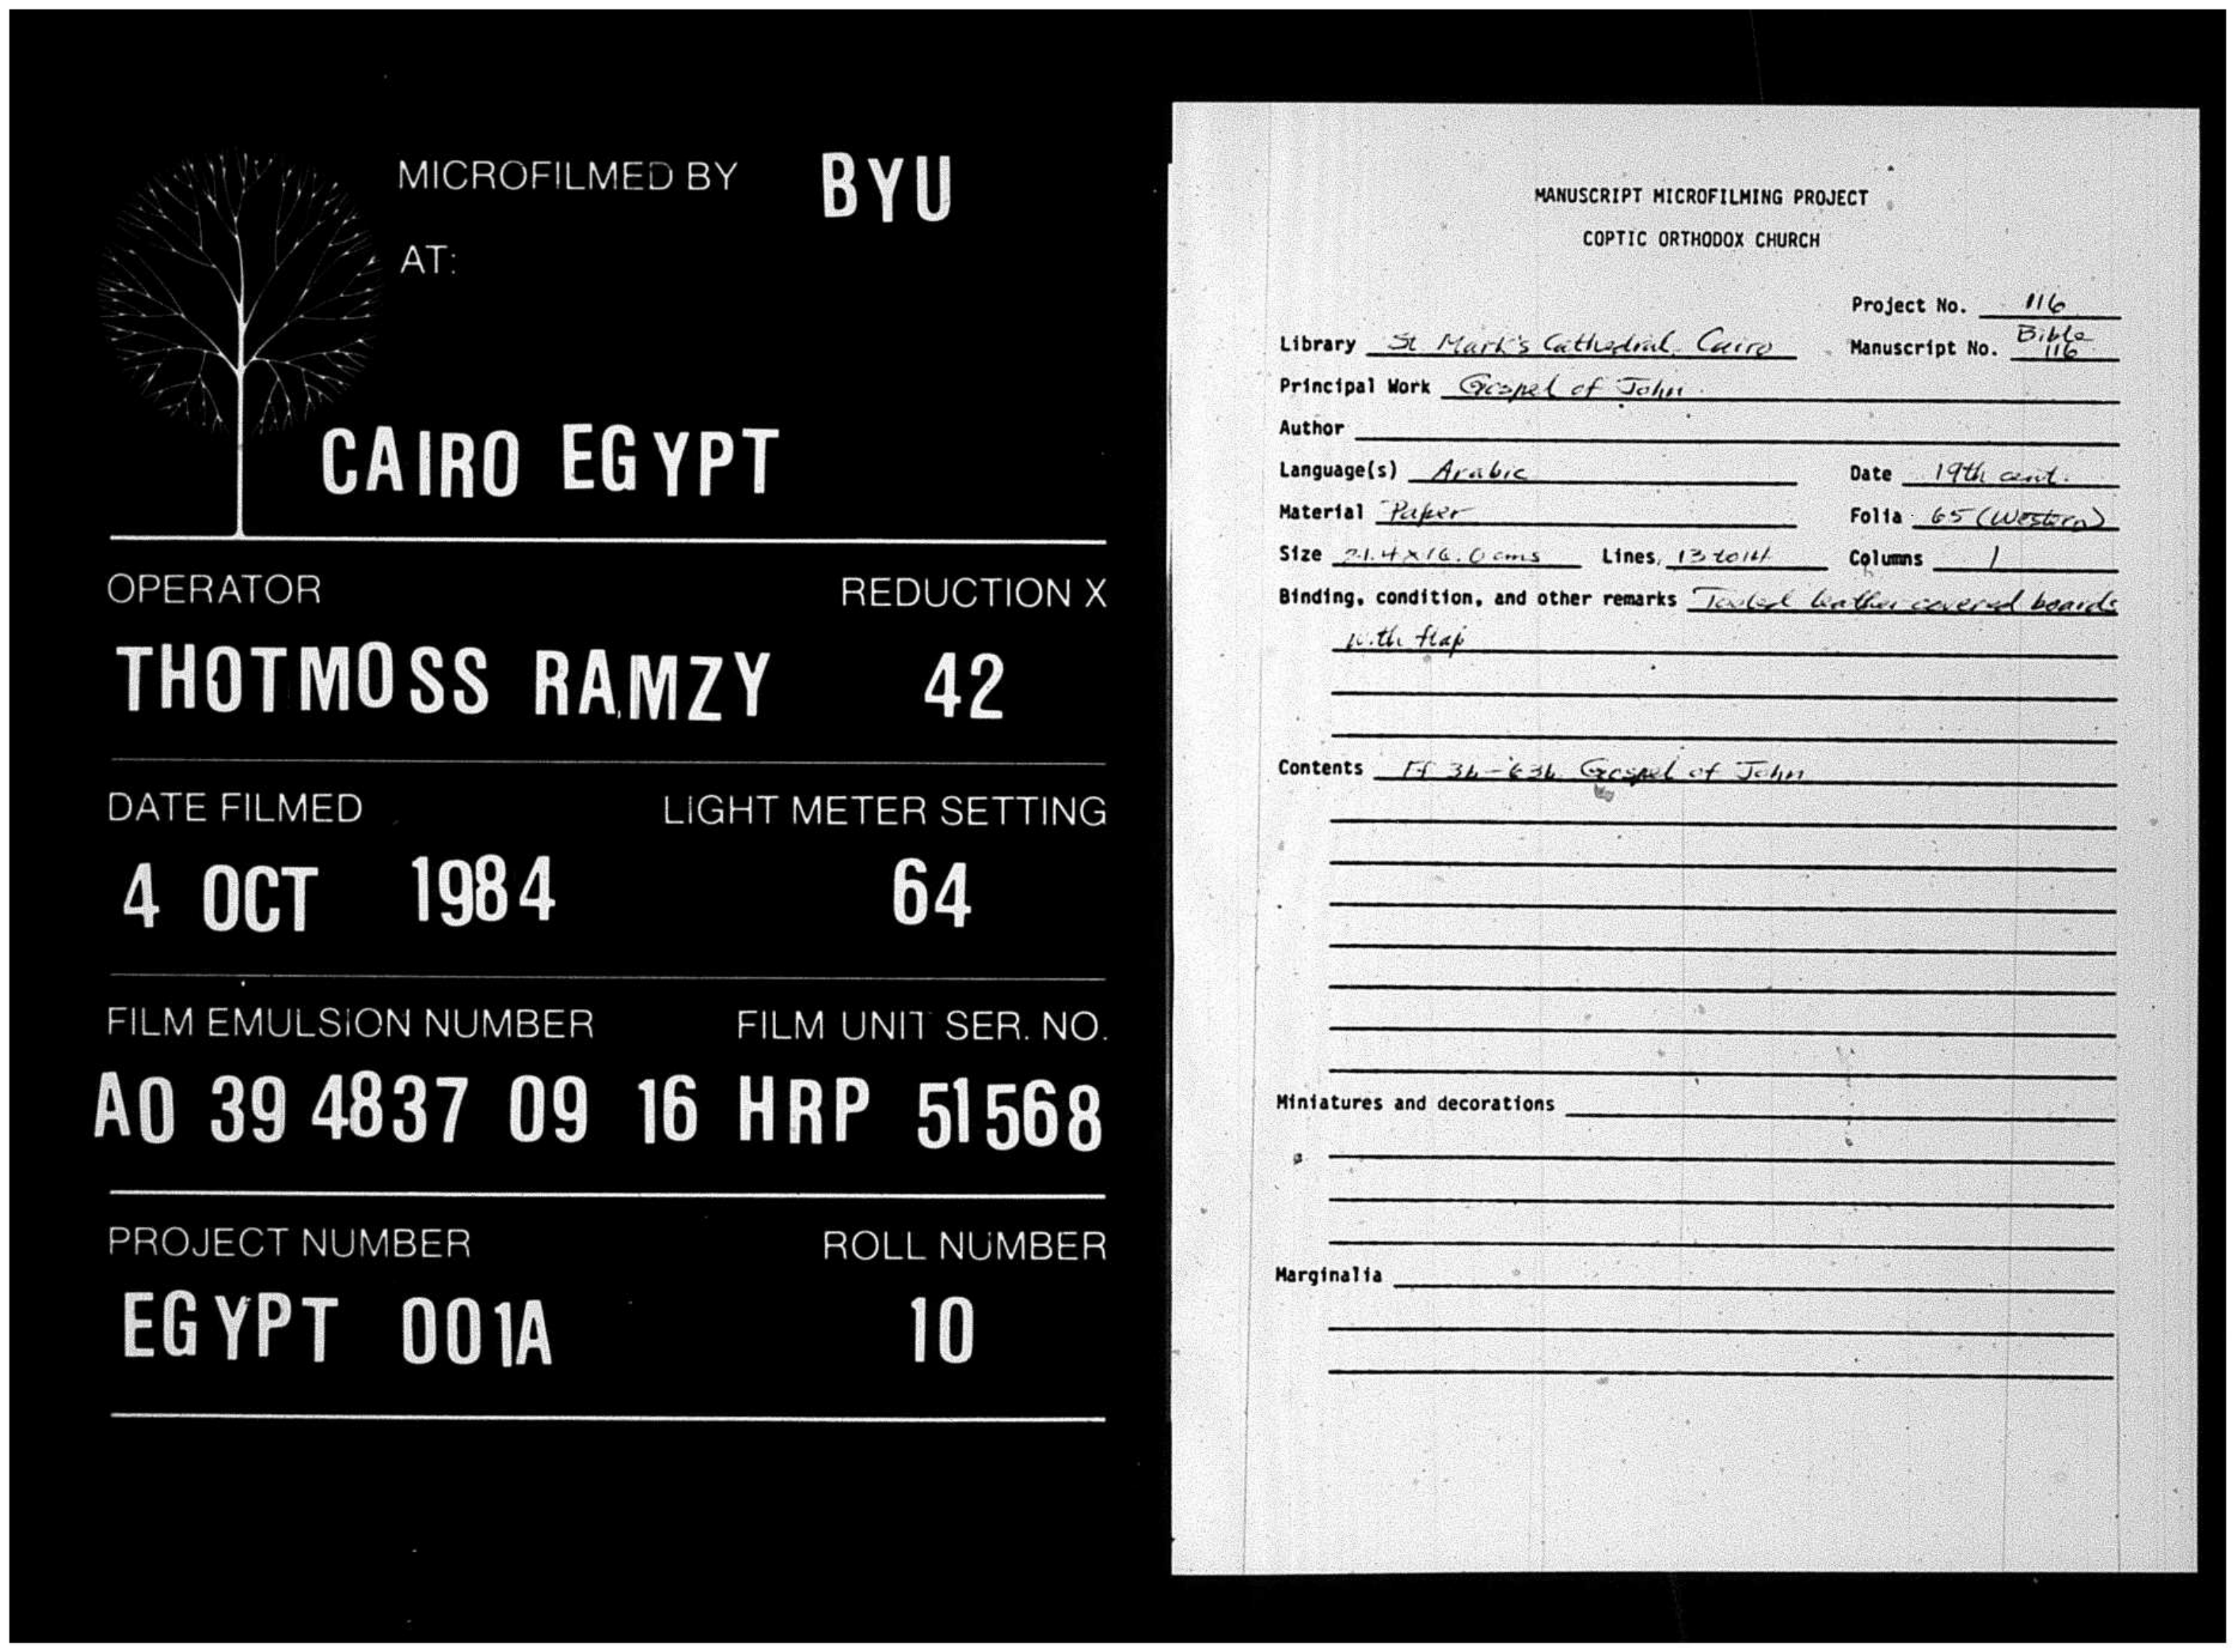 MICROFILMED BY BYU
AT:
CAIRO EGYPT
OPERATOR REDUCTION X
THOTMOSS RAMZY 42
DATE FILMED LIGHT METER SETTING
4 OCT 1984 64
FILM EMULSION NUMBER FILM UNIT SER. NO.
A0 39 4837 09 16 HRP 51568
PROJECT NUMBER ROLL NUMBER
EGYPT 001A 10
MANUSCRIPT MICROFILMING PROJECT
COPTIC ORTHODOX CHURCH
Project No. 116
Library St Mark's Cathedral, Cairo Manuscript No. Bible 116
Principal Work Gospel of John
Author
Language(s) Arabic Date 19th cent.
Material Paper Folia 65 (Western)
Size 21.4 x 16.0 cms Lines 13 to 14 Columns 1
Binding, condition, and other remarks Tooled leather covered boards
with flap
Contents Ff 3b-63b Gospel of John
Miniatures and decorations
Marginalia